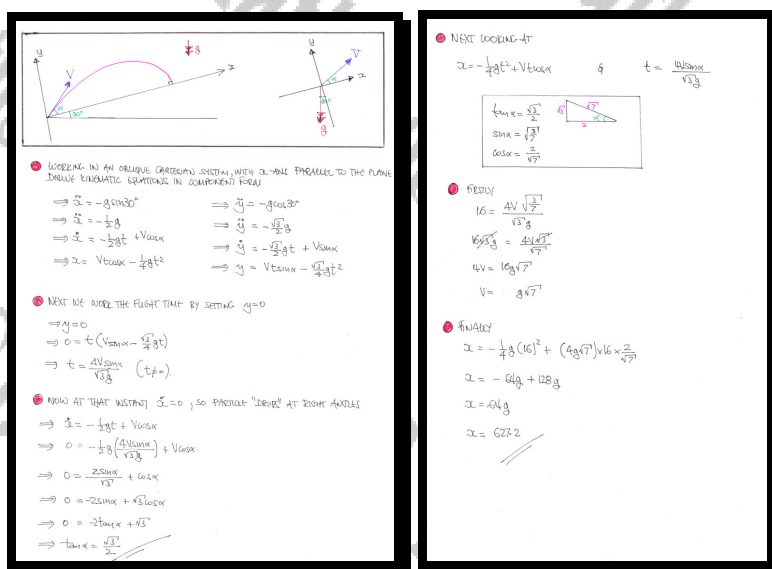 y
V
α
30°
x
g
y
V
α
x
30°
g
WORKING IN AN OBLIQUE CARTESIAN SYSTEM, WITH x-AXIS PARALLEL TO THE PLANE
DERIVE KINEMATIC EQUATIONS IN COMPONENT FORM
⇒ ẍ = -gsin30°
⇒ ẍ = -½g
⇒ ẋ = -½gt + Vcosα
⇒ x = Vtcosα - ¼gt²
⇒ ÿ = -gcos30°
⇒ ÿ = -√3/2 g
⇒ ẏ = -√3/2 gt + Vsinα
⇒ y = Vtsinα - √3/4 gt²
NEXT WE WORK THE FLIGHT TIME BY SETTING y=0
⇒ y=0
⇒ 0 = t(Vsinα - √3/4 gt)
⇒ t = 4Vsinα/√3g (t≠0)
NOW AT THAT INSTANT ẋ=0, SO PARTICLE "DROPS" AT RIGHT ANGLES
⇒ ẋ = -½gt + Vcosα
⇒ 0 = -½g(4Vsinα/√3g) + Vcosα.
⇒ 0 = -2sinα/√3 + cosα
⇒ 0 = -2sinα + √3cosα
⇒ 0 = -2tanα + √3
⇒ tanα = √3/2
NEXT LOOKING AT
x = -¼gt² + Vtcosα & t = 4Vsinα/√3g
tanα = √3/2
sinα = √3/√7
cosα = 2/√7
√3
√7
α
2
FIRSTLY
16 = 4V√(3/7)/√3g
16√3g = 4V√3/√7
4V = 16g√7
V = g√7
FINALLY
x = -¼g(16)² + (4g√7)×16×2/√7
x = -64g + 128g
x = 64g
x = 627.2